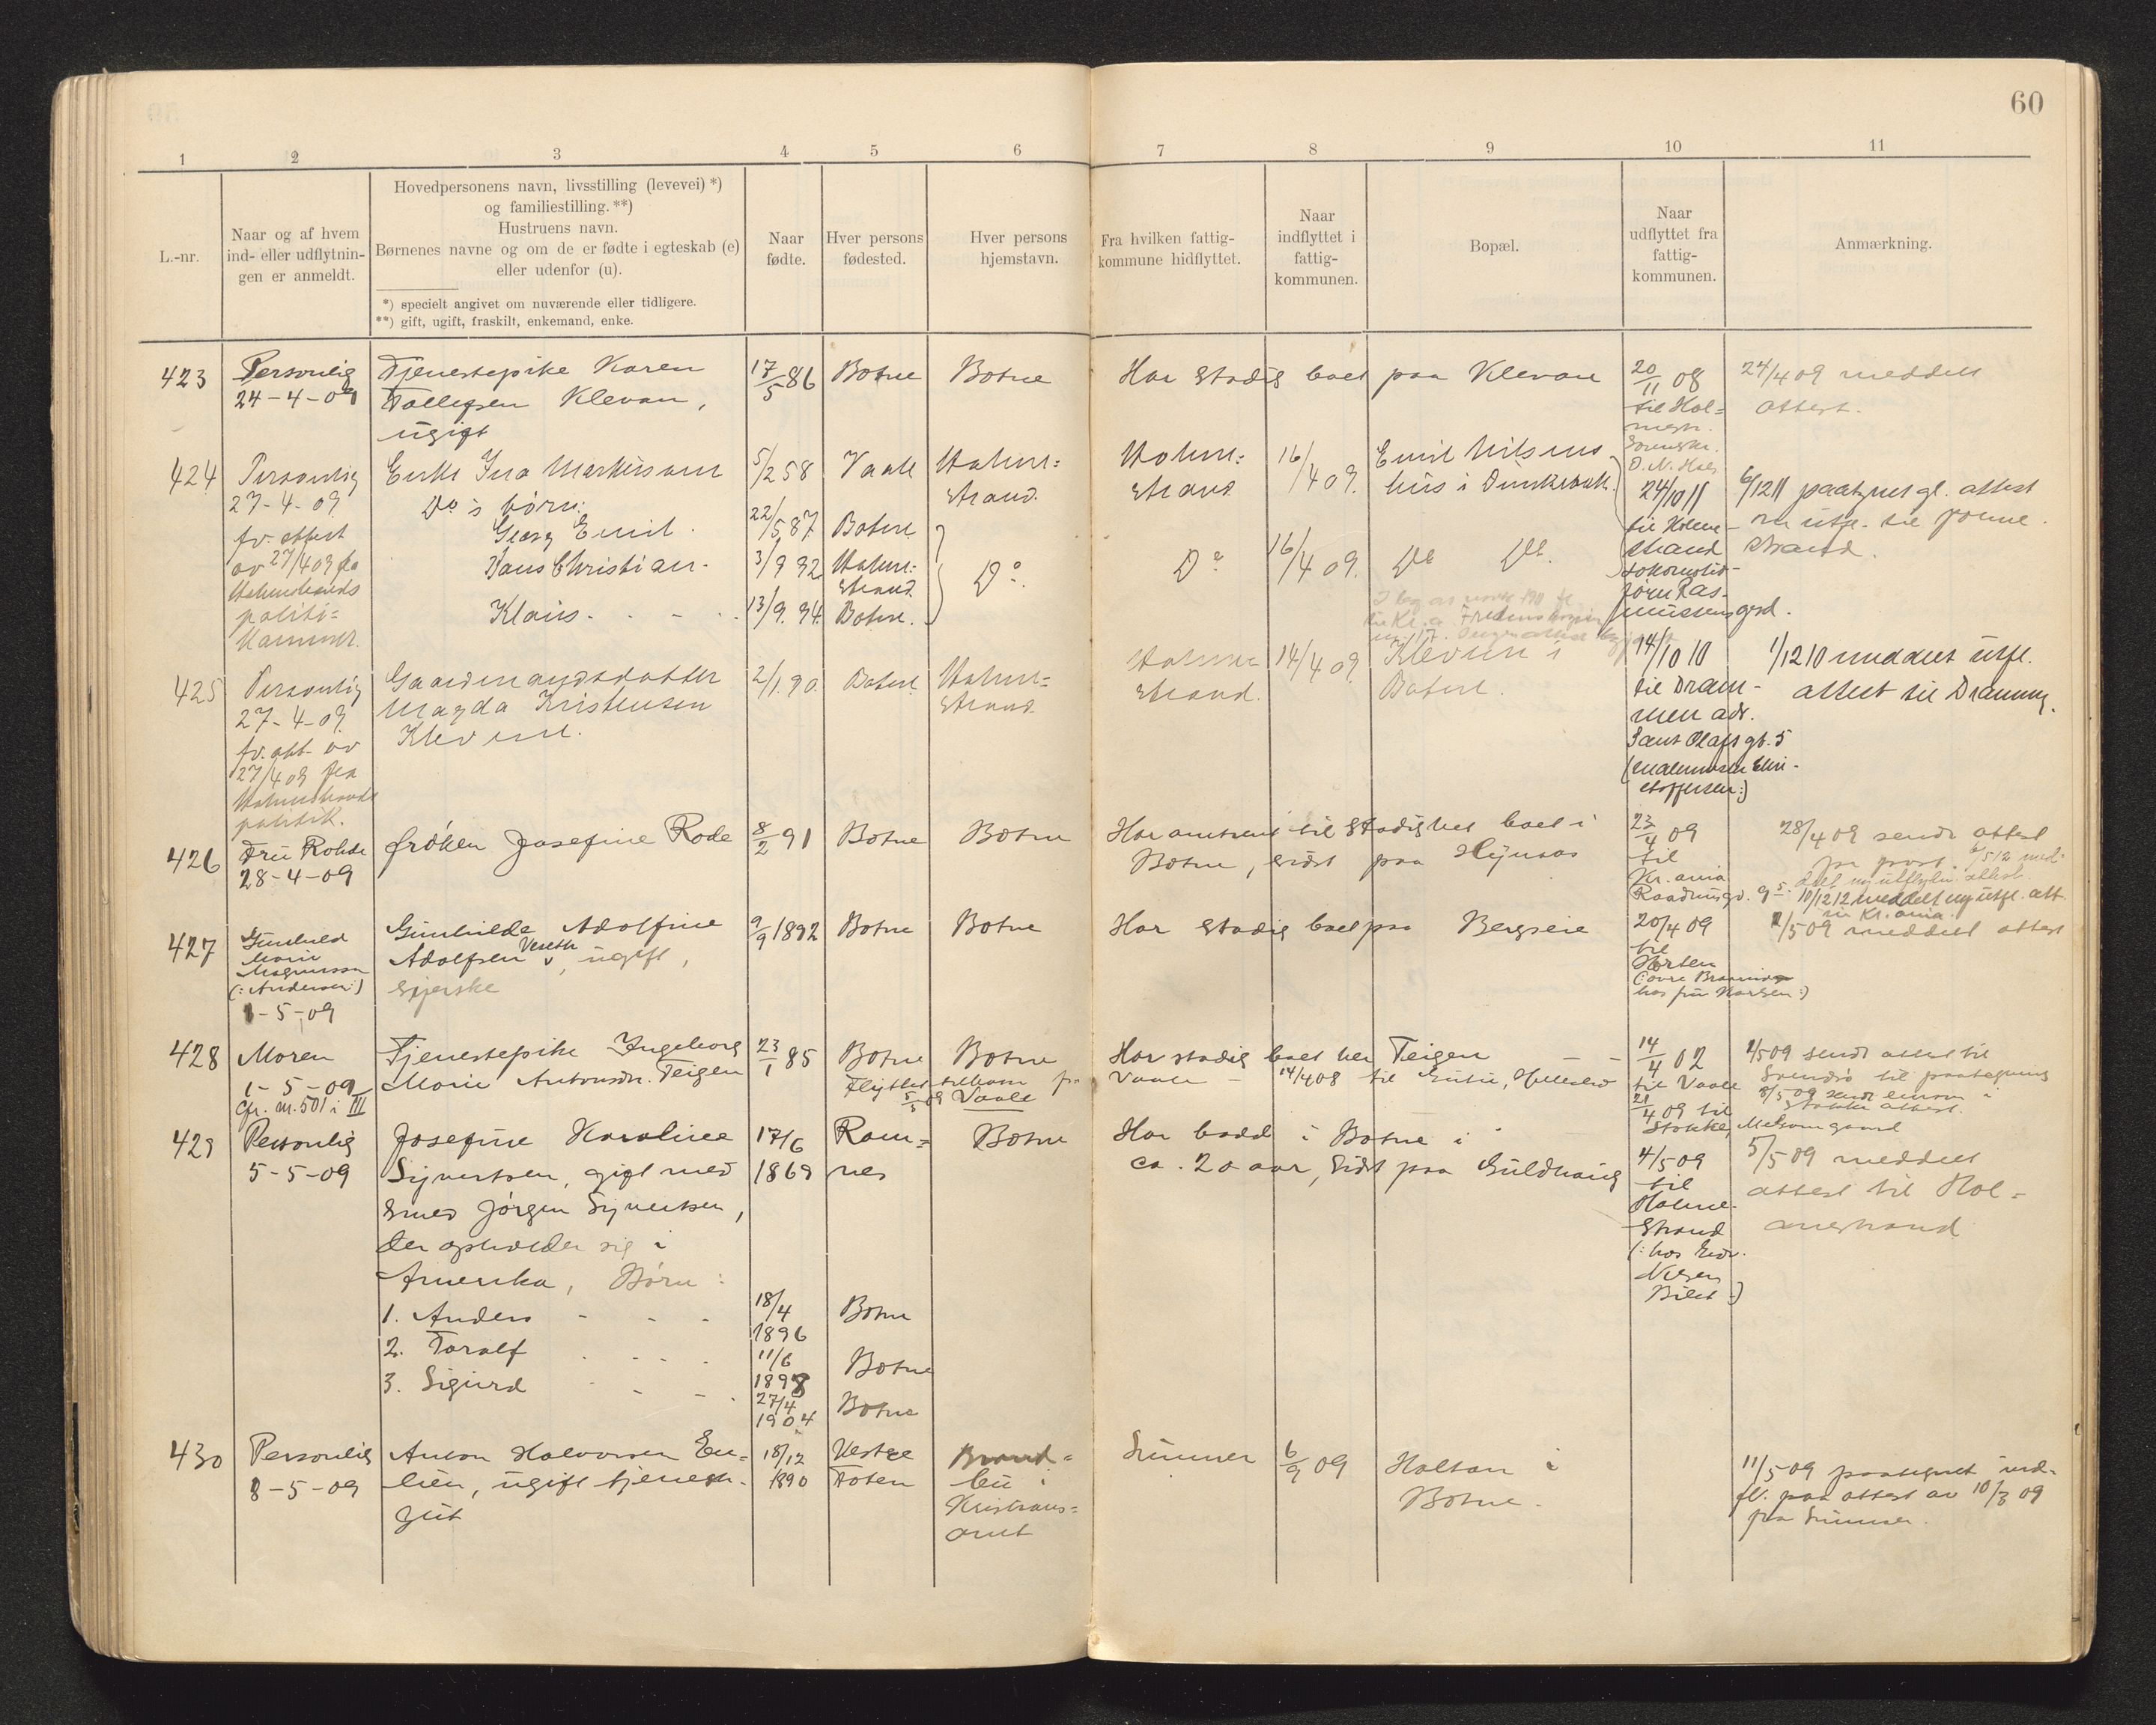 60
1 2 3 4 5 6 7 8 9 10 11
L.-nr.
Naar og af hvem
ind- eller udflytnin-
gen er anmeldt.
Hovedpersonens navn, livsstilling (levevei) *)
og familiestilling. **)
Hustruens navn.
Børnenes navne og om de er fødte i egteskab (e)
eller udenfor (u).
*) specielt angivet om nuværende eller tidligere.
**) gift, ugift, fraskilt, enkemand, enke.
Naar
fødte.
Hver persons
fødested.
Hver persons
hjemstavn.
Fra hvilken fattig-
kommune hidflyttet.
Naar
indflyttet i
fattig-
kommunen.
Bopæl.
Naar
udflyttet fra
fattig-
kommunen.
Anmærkning.
423
Personlig
24-4-09
Tjenestepike Karen
Tollefsen Klevan,
ugift
17/5 86
Botne
Botne
Har stadig boet paa Klevan
20/11 08
til Hol=
mestr.
24/4 09 meddelt
attest.
424
Personlig
27-4-09
fv. attest
av 27/4 09 fra
Holmestrands
politi=
kammer.
Enke Ina Markussen
Do's børn:
Georg Emil.
Hans Christian.
Klaus.
5/2 58
22/5 87.
3/9 92
13/9. 94.
Vaale
Botne
Holme=
strand
Botne.
Holme=
strand.
Do.
Holme=
strand
Do
16/4 09.
16/4 09.
Emil Nilsens
hus i
Do Do.
24/10 11
til Holme-
strand
6/12 11 paategnet gl. attest
om utfl. til Holme
strand.
425
Personlig
27-4-09
fv. att. av
27/4 09 fra
Holmestrands
politik.
Gaardmandsdatter
Magda Kristensen
Kleven.
2/1. 90.
Botne
Holme=
strand
Holme=
strand.
14/4 09
Kleven i
Botne.
14/10 10
til Dram-
men adr.
Sanct Olafs gt. 5
1/12 10 meddelt utfl.
attest til Drammen.
426
Fru Rohde
28-4-09
frøken Josefine Rode
8/2 91
Botne
Botne
Har omtrent til stadighet boet i
Botne, sidst paa
23/4 09
til
Kr.ania
28/4 09 sendt attest
pr post.
10/12 12 meddelt ny utfl. att.
til Kr.ania.
427
Gunhild
Marie
Magnussen
(: Andersen :)
1-5-09
Gunhilde Adolfine
Adolfsen Veseth, ugift,
syerske
9/9 1892
Botne
Botne
Har stadig boet paa Bergseie
20/4 09
til
Horten
1/5 09 meddelt attest
428
Moren
1-5-09
Cfr. nr. 501 i III
Tjenestepike Ingeborg
Marie Antonsdr. Teigen
23/1 85
Botne
Botne
Flyttet tilbake fra
5/5 09 Vaale
Har stadig boet her Teigen
Vaale - 14/4 08 til
14/4 02
til Vaale
21/4 09 til
Stokke,
1/5 09 sendt attest til
til paategning
429
Personlig
5-5-09
Josefine Karoline
Syvertsen, gift med
Smed Jørgen Syvertsen,
der opholder sig i
Amerika, Børn:
1. Anders
2. Toralf
3. Sigurd
17/6
1869
18/4
1896
11/6
1898
27/4
1904
Ram=
nes
Botne
Botne
Botne
Botne
Har bodd i Botne i
ca. 20 aar, sidst paa Guldhaug
4/5 09
til
Holme-
strand
5/5 09 meddelt
attest til Hol=
mestrand
430
Personlig
8-5-09
Anton Halvorsen En=
lien, ugift tjeneste-
gut
18/12
1890
Vestre
Toten
Brand=
bu i
Kristians=
amt
Lunner
6/9 09
Holtan i
Botne.
11/5 09 paategnet ind-
fl. paa attest av 10/3 09
fra Lunner.